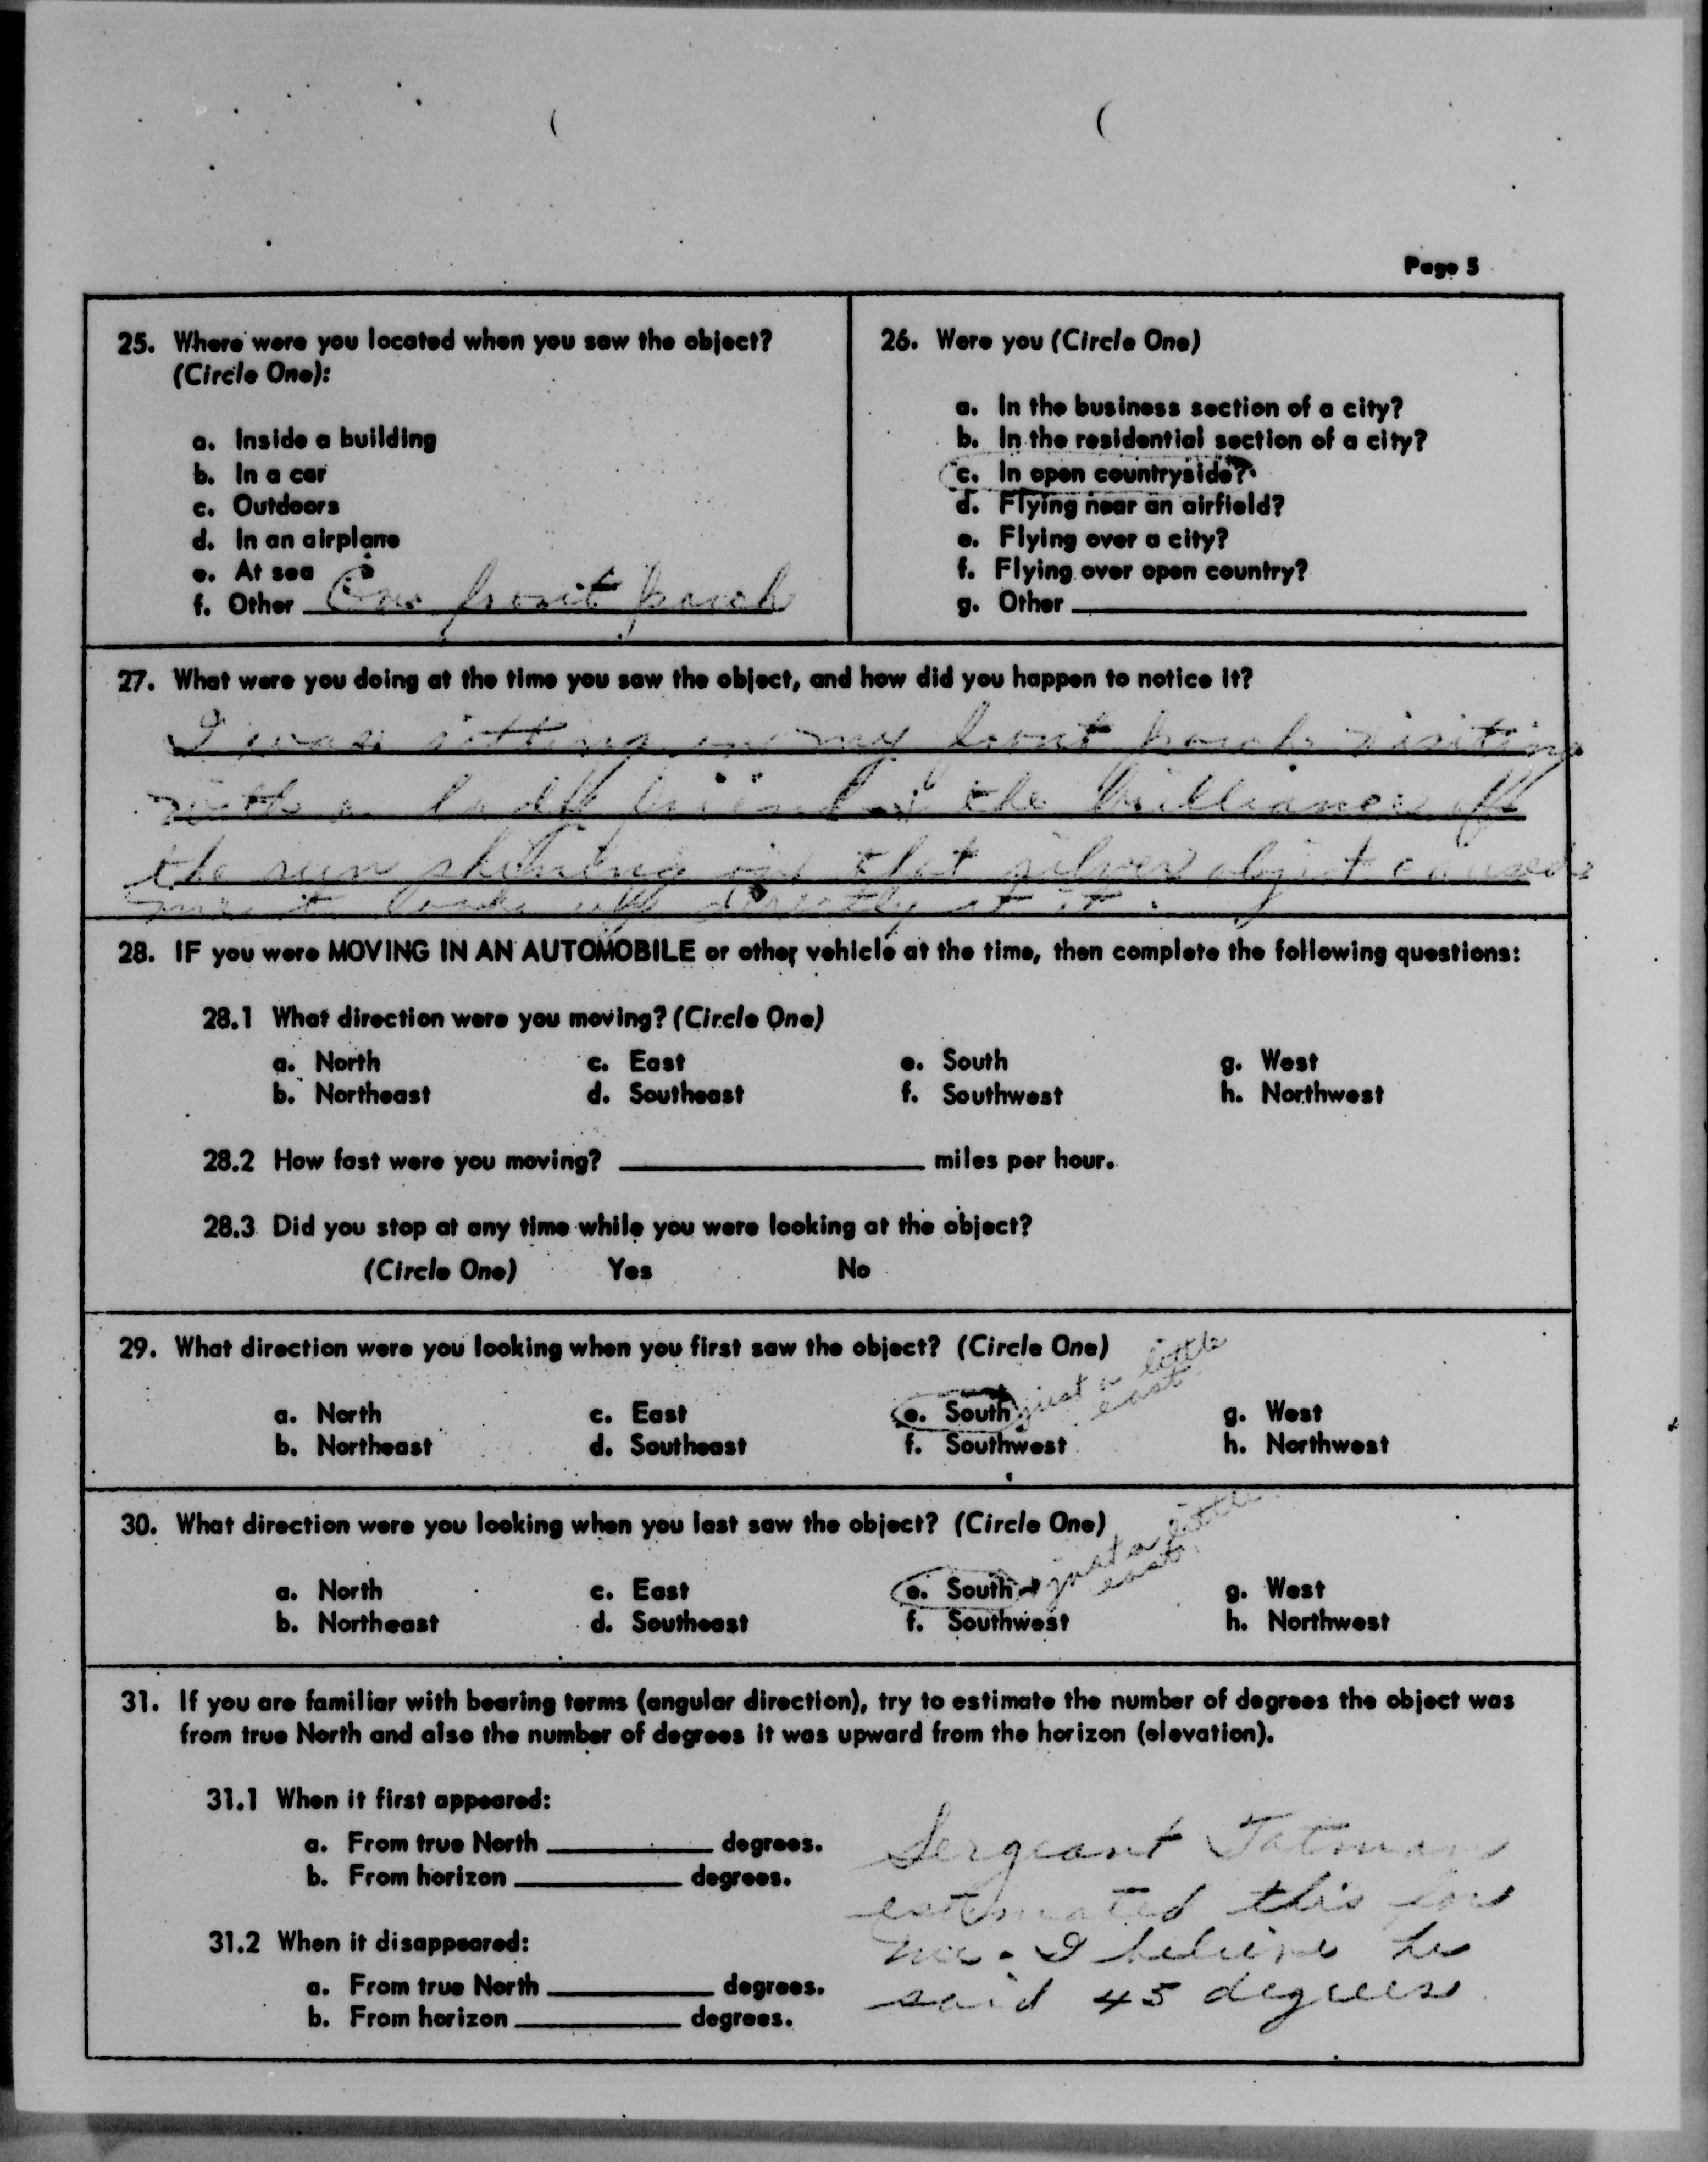 Page 5
25. Where were you located when you saw the object?
(Circle One):
a. Inside a building
b. In a car
c. Outdoors
d. In an airplane
e. At sea
f. Other On front porch
26. Were you (Circle One)
a. In the business section of a city?
b. In the residential section of a city?
c. In open countryside?
d. Flying near an airfield?
e. Flying over a city?
f. Flying over open country?
g. Other
27. What were you doing at the time you saw the object, and how did you happen to notice it?
I was sitting on my front porch visiting
with a lady friend & the brilliance of
the sun shining on that silver object caused
me to look up directly at it.
28. IF you were MOVING IN AN AUTOMOBILE or other vehicle at the time, then complete the following questions:
28.1 What direction were you moving? (Circle One)
a. North c. East e. South g. West
b. Northeast d. Southeast f. Southwest h. Northwest
28.2 How fast were you moving? miles per hour.
28.3 Did you stop at any time while you were looking at the object?
(Circle One) Yes No
29. What direction were you looking when you first saw the object? (Circle One)
just a little
east
a. North c. East e. South g. West
b. Northeast d. Southeast f. Southwest h. Northwest
30. What direction were you looking when you last saw the object? (Circle One)
just a little
east
a. North c. East e. South g. West
b. Northeast d. Southeast f. Southwest h. Northwest
31. If you are familiar with bearing terms (angular direction), try to estimate the number of degrees the object was
from true North and also the number of degrees it was upward from the horizon (elevation).
31.1 When it first appeared:
a. From true North degrees.
b. From horizon degrees.
31.2 When it disappeared:
a. From true North degrees.
b. From horizon degrees.
Sergeant Tatman
estimated this for
me. I believe he
said 45 degrees